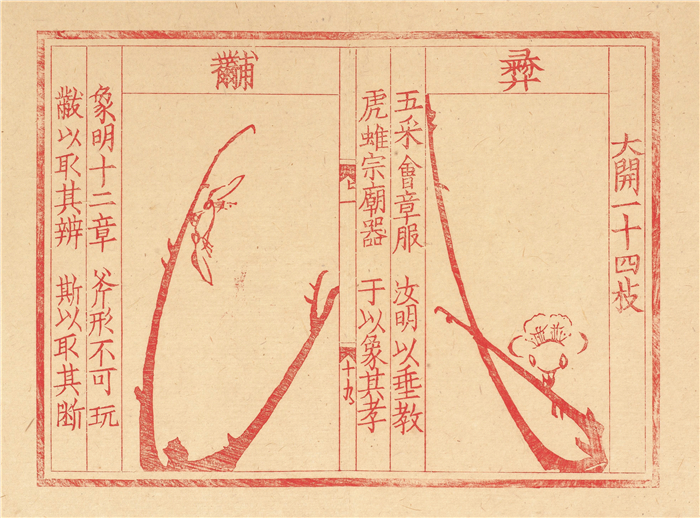 大開一十四枝
彝
五采會章服 汝明以垂教
虎蜼宗廟器 于以象其孝
上
十九
黼
象明十二章 斧形不可玩
黻以取其辨 斯以取其断